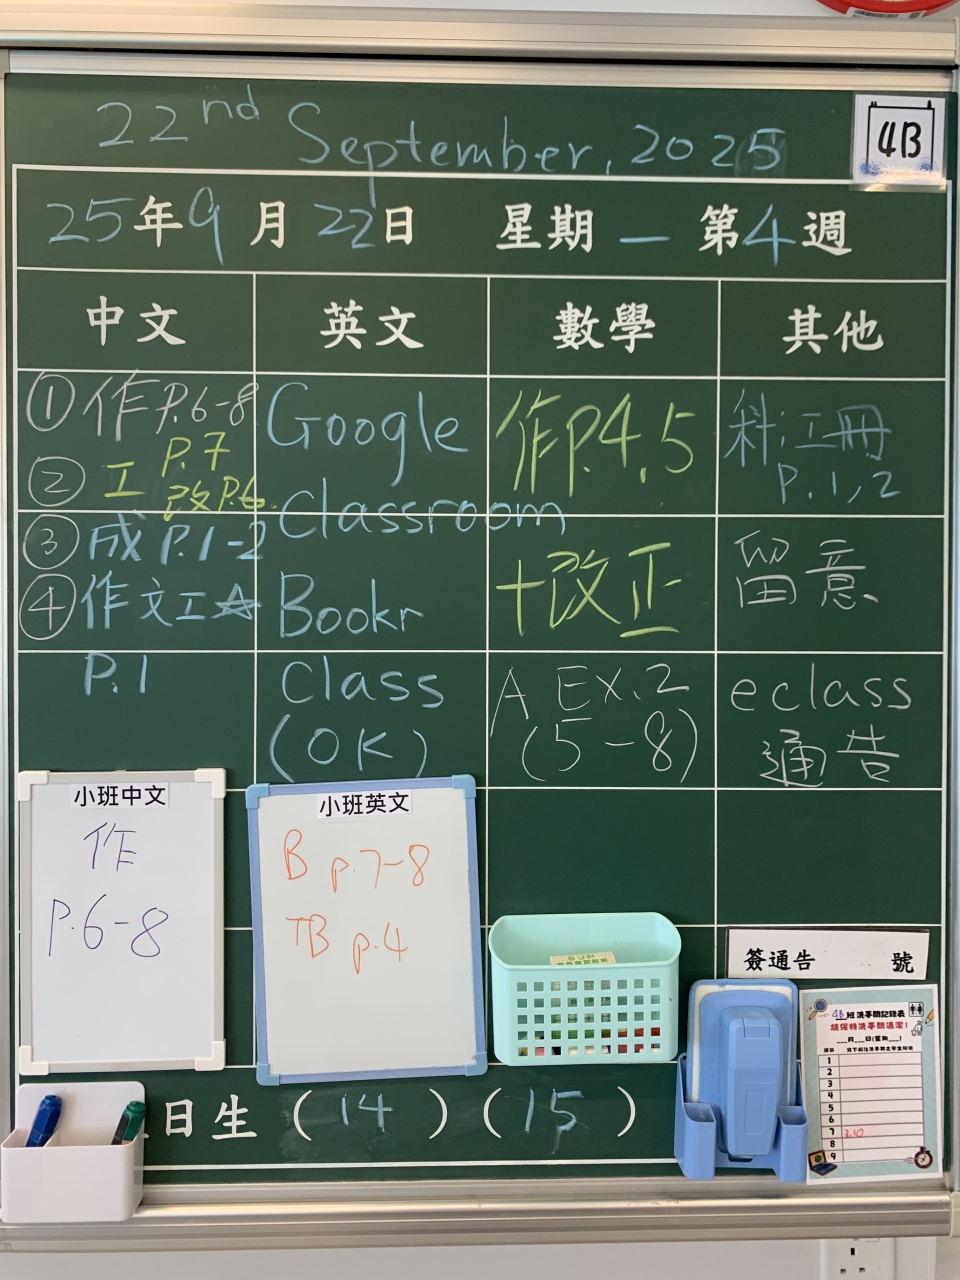 22nd September, 2025
4B
25年9月22日 星期一 第4週
中文 英文 數學 其他
① 作 P.6-8
② 工 P.7
改 P.6
③ 成 P.1-2
④ 作文工☆
P.1
Google
Classroom
Bookr
Class
(OK)
作 P.4, 5
+改正
A Ex.2
(5-8)
科:工冊
P.1, 2
留意
eclass
通告
小班中文
作
P.6-8
小班英文
B p.7-8
TB p.4
簽通告 號
4B班洗手間記錄表
請保持洗手間清潔!
___月___日(星期___)
1
2
3
4
5
6
7
8
9
日生 (14) (15)